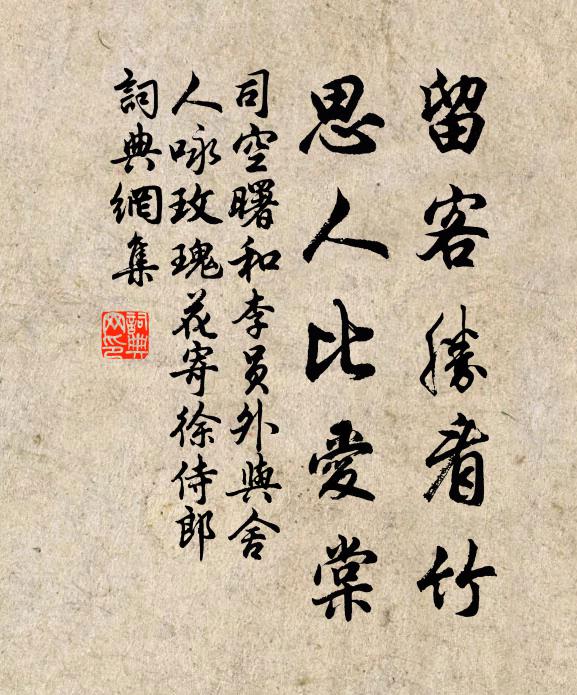 留客勝看竹
思人比愛棠
司空曙和李员外與舍
人咏玫瑰花寄徐侍郎
詞典網集
詞典
网印